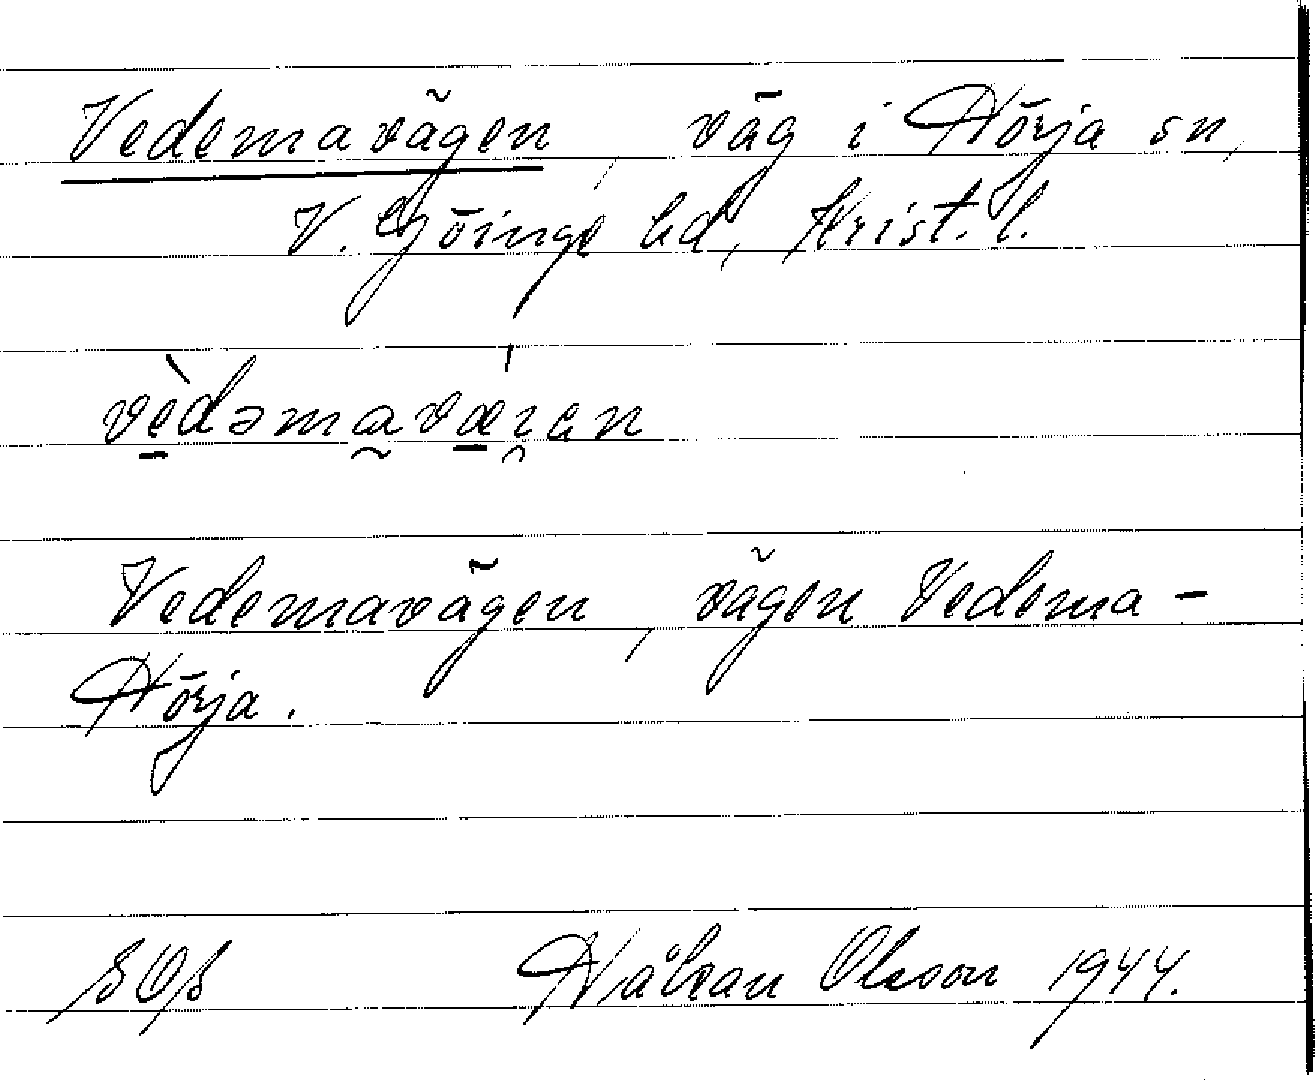 Vedemavägen, väg i Hörja sn,
V. Göinge hd, Krist. l.
vèdəmavǽɪən
Vedemavägen, vägen Vedema-
Hörja.
SOS Håkan Olsson 1944.